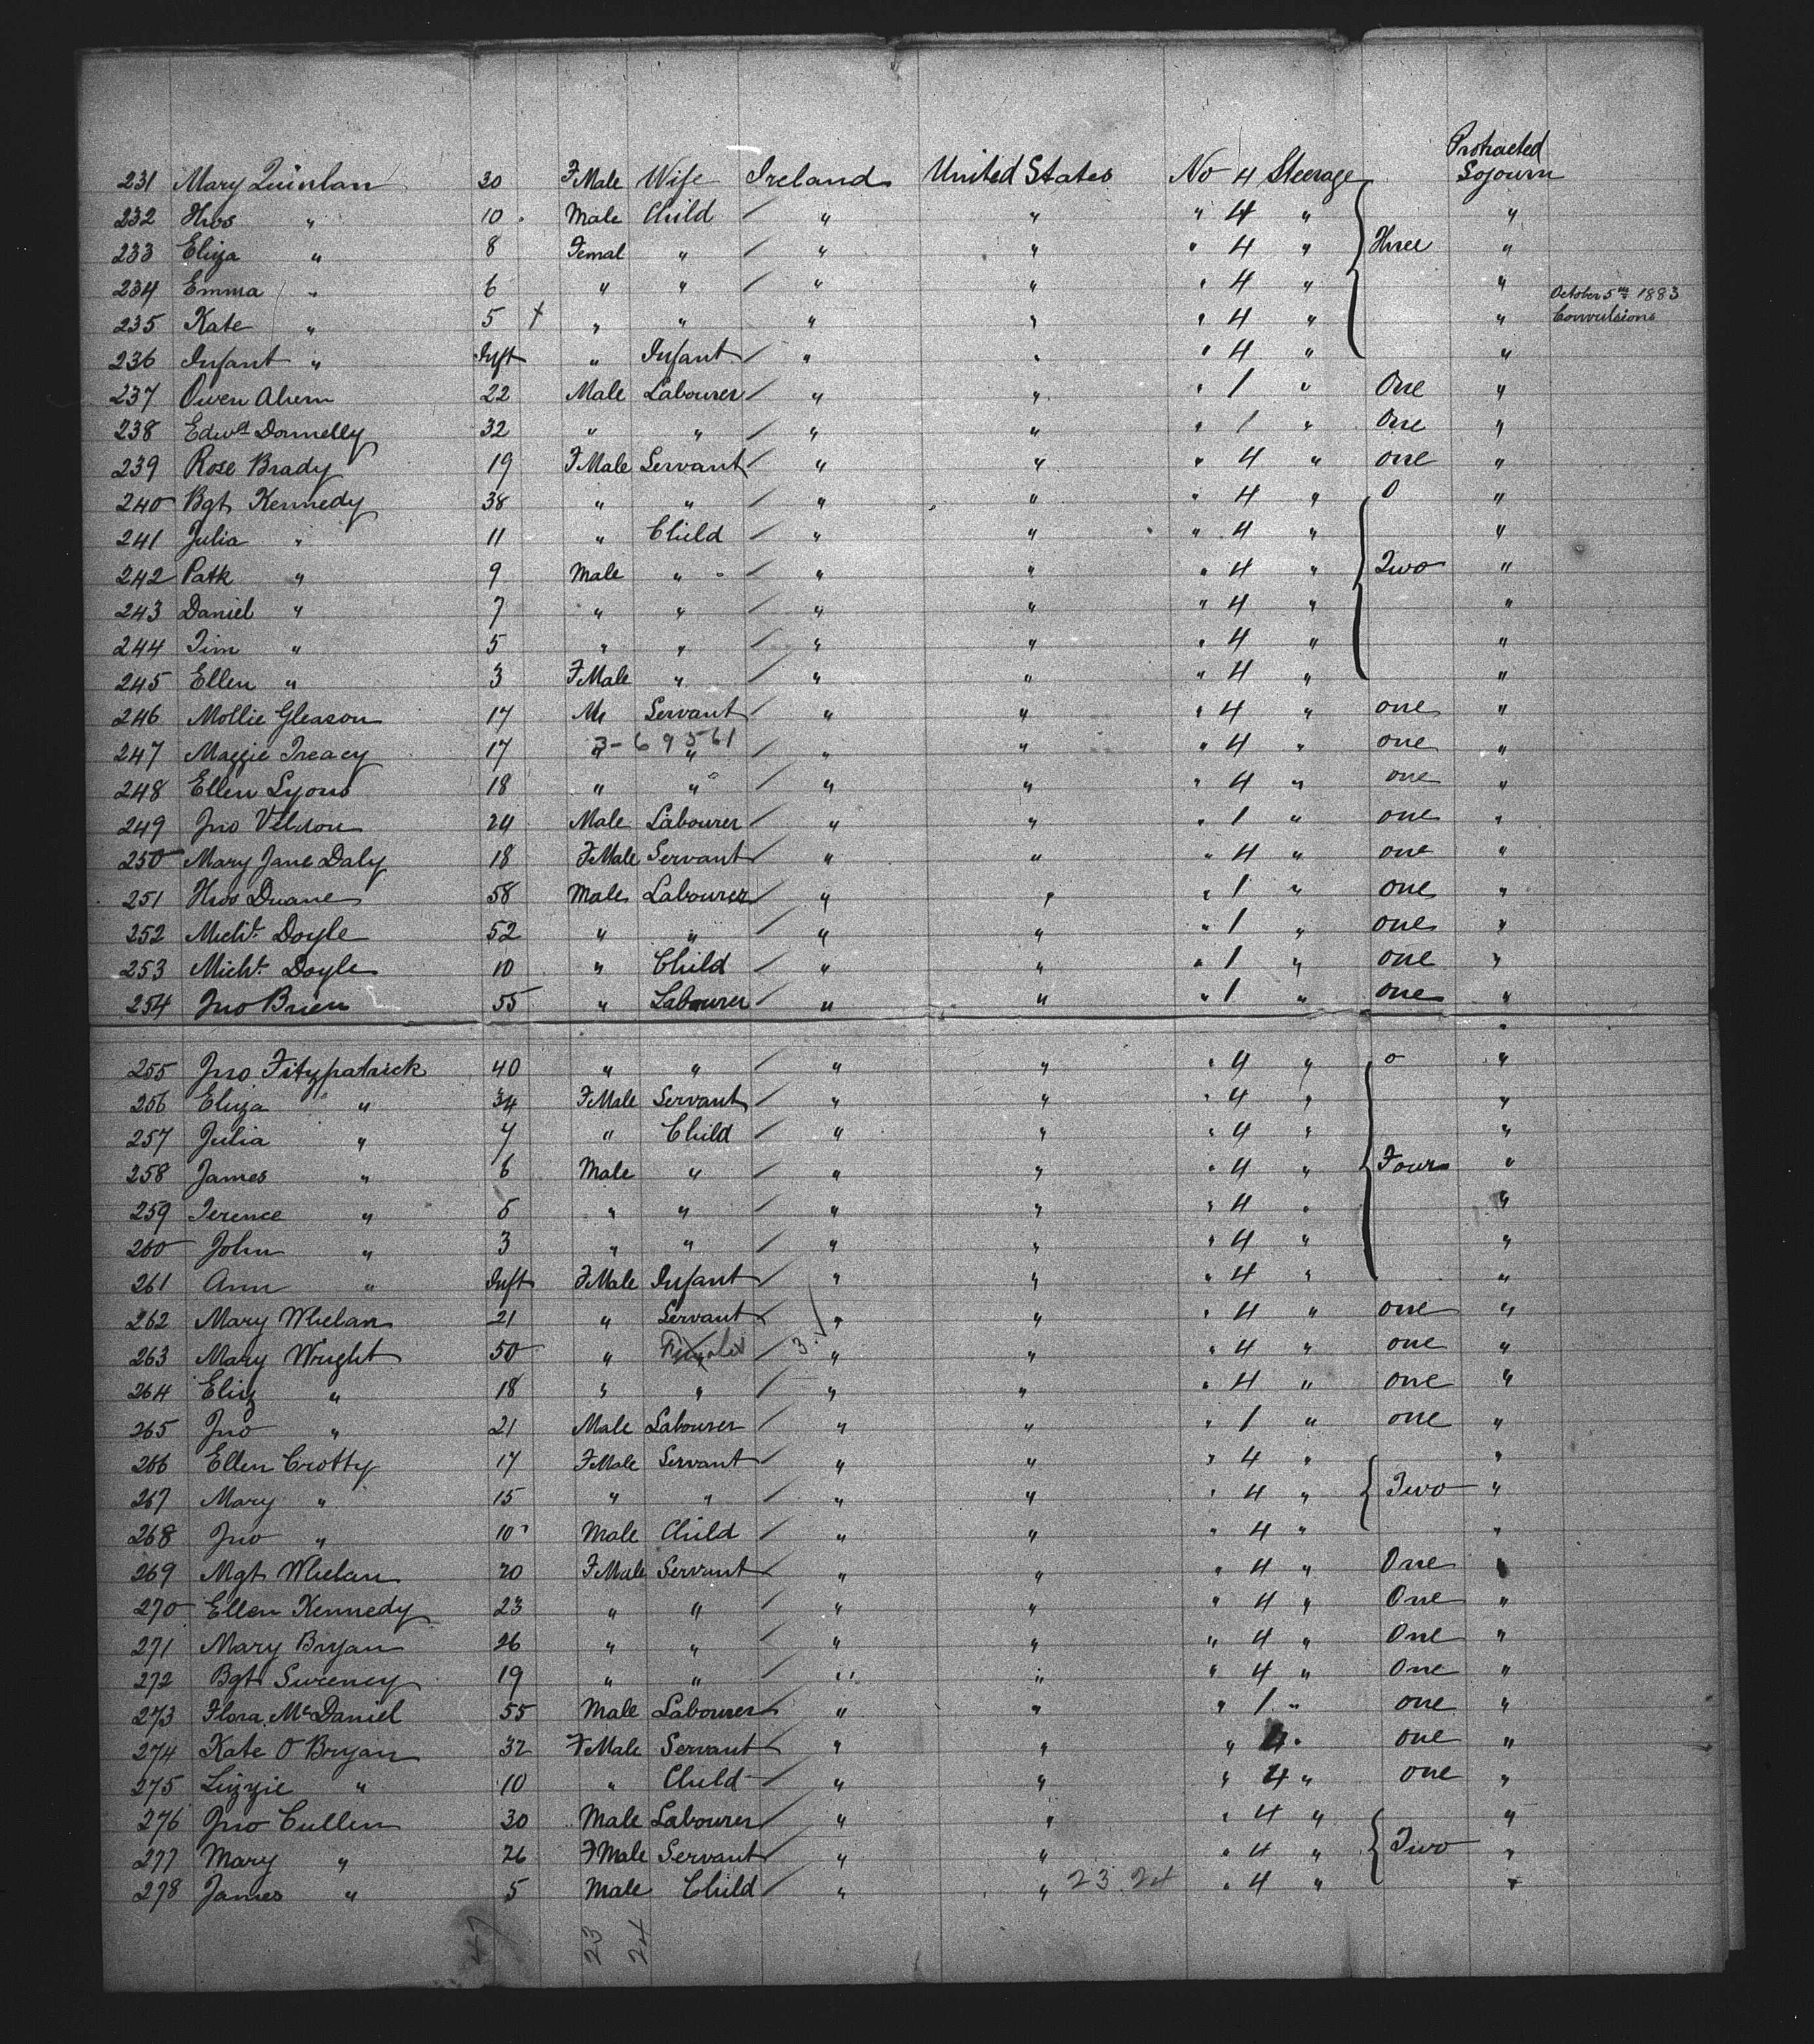 Protracted
231 Mary Quinlan 30 FMale Wife Ireland United States No 4 Steerage Sojourn
232 Thos " 10 Male Child / " " " 4 " "
233 Eliza " 8 Femal " / " " " 4 " Three "
234 Emma " 6 " " / " " " 4 " " October 5th 1883
235 Kate " 5 † " " " " " 4 " " Convulsions
236 Infant " Inft " Infant / " " " 4 " "
237 Owen Ahern 22 Male Labourer / " " " 1 " One "
238 Edwd Donnelly 32 " " / " " " 1 " One "
239 Rose Brady 19 FMale Servant / " " " 4 " one "
240 Bgt Kennedy 38 " " / " " " 4 " 0 "
241 Julia " 11 " Child / " " " 4 " "
242 Patk " 9 Male " / " " " 4 " Two "
243 Daniel " 7 " " / " " " 4 " "
244 Tim " 5 " " / " " " 4 " "
245 Ellen " 3 FMale " / " " " 4 " "
246 Mollie Gleason 17 Servant / " " " 4 " one "
247 Maggie Treacy 17 3-69561 " / " " " 4 " one "
248 Ellen Lyons 18 " " / " " " 4 " one "
249 Jno Veldon 24 Male Labourer / " " " 1 " one "
250 Mary Jane Daly 18 FMale Servant / " " " 4 " one "
251 Thos Duane 58 Male Labourer / " " " 1 " one "
252 Michl. Doyle 52 " " / " " " 1 " one "
253 Michl. Doyle 10 " Child / " " " 1 " one "
254 Jno Brien 55 " Labourer / " " " 1 " one "
255 Jno Fitzpatrick 40 " " / " " " 4 " o "
256 Eliza " 34 FMale Servant / " " " 4 " "
257 Julia " 7 " Child / " " " 4 " "
258 James " 6 Male " / " " " 4 " Four "
259 Terence " 5 " " / " " " 4 " "
260 John " 3 " " / " " " 4 " "
261 Ann " Inft FMale Infant / " " " 4 " "
262 Mary Whelan 21 " Servant / " " " 4 " one "
263 Mary Wright 50 " / 3 " " " 4 " one "
264 Eliz " 18 " " / " " " 4 " one "
265 Jno " 21 Male Labourer / " " " 1 " one "
266 Ellen Crotty 17 FMale Servant / " " " 4 " "
267 Mary " 15 " " / " " " 4 " Two "
268 Jno " 10 Male Child / " " " 4 " "
269 Mgt Whelan 20 FMale Servant / " " " 4 " One "
270 Ellen Kennedy 23 " " / " " " 4 " One "
271 Mary Bryan 26 " " / " " " 4 " One "
272 Bgt Sweeney 19 " " / " " " 4 " One "
273 Flora McDaniel 55 Male Labourer / " " " 1 " one "
274 Kate O Bryan 32 FMale Servant / " " " 4 " one "
275 Lizzie " 10 " Child / " " " 4 " one "
276 Jno Cullen 30 Male Labourer / " " " 4 " "
277 Mary " 26 FMale Servant / " " " 4 " Two "
278 James " 5 Male Child / " " 23 24 " 4 " "
47 23 24